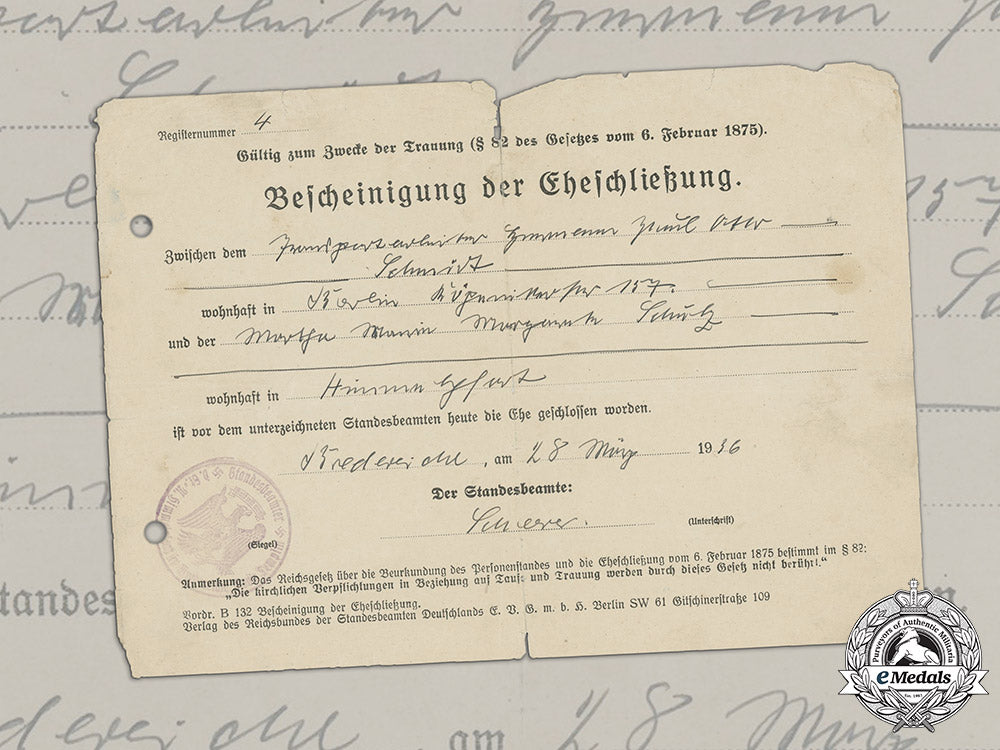 Registernummer 4
Gültig zum Zwecke der Trauung (§ 82 des Gesetzes vom 6. Februar 1875).
Bescheinigung der Eheschließung.
Zwischen dem Transportarbeiter Hermann Paul Otto
Schmidt
wohnhaft in Berlin Köpenickerstr 157.
und der Martha Marie Margarete Schulz
wohnhaft in Himmelpfort
ist vor dem unterzeichneten Standesbeamten heute die Ehe geschlossen worden.
Bredereiche, am 28 März 1936
Der Standesbeamte:
(Unterschrift)
(Siegel)
Standesbeamter
Anmerkung: Das Reichsgesetz über die Beurkundung des Personenstandes und die Eheschließung vom 6. Februar 1875 bestimmt im § 82:
„Die kirchlichen Verpflichtungen in Beziehung auf Taufe und Trauung werden durch dieses Gesetz nicht berührt.“
Vordr. B 132 Bescheinigung der Eheschließung.
Verlag des Reichsbundes der Standesbeamten Deutschlands E. V. G. m. b. H. Berlin SW 61 Gitschinerstraße 109
Purveyors of Authentic Militaria
eMedals